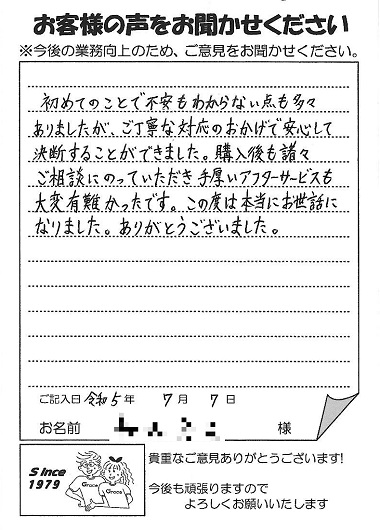 お客様の声をお聞かせください
※今後の業務向上のため、ご意見をお聞かせください。
初めてのことで不安もわからない点も多々
ありましたが、ご丁寧な対応のおかげで安心して
決断することができました。購入後も諸々
ご相談にのっていただき手厚いアフターサービスも
大変有難かったです。この度は本当にお世話に
なりました。ありがとうございました。
ご記入日 令和5年 7月 7日
お名前 様
Since
1979
Grace
Grace
貴重なご意見ありがとうございます!
今後も頑張りますので
よろしくお願いいたします